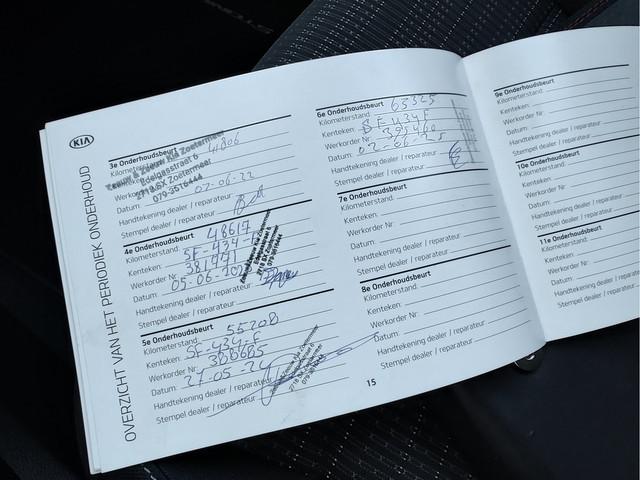 KIA
OVERZICHT VAN HET PERIODIEK ONDERHOUD
3e Onderhoudsbeurt
Kilometerstand
Zeeuw & Zeeuw Kia Zoetermeer
Edelgasstraat 6
2718 SX Zoetermeer
079-3516444
Datum: 02-06-22
Handtekening dealer / reparateur
Stempel dealer / reparateur
4e Onderhoudsbeurt
Kilometerstand 48617
Kenteken: SF-434-F
Werkorder Nr:
Datum:
Handtekening dealer / reparateur
Stempel dealer / reparateur
2718 SX Zoetermeer
079-3516444
5e Onderhoudsbeurt
Kilometerstand: 55208
Kenteken: SF-434-F
Werkorder Nr: 388685
Datum: 27-05-24
Handtekening dealer / reparateur
Stempel dealer / reparateur
2718 SX Zoetermeer
079-3516444
6e Onderhoudsbeurt
Kilometerstand: 65325
Kenteken: SF-434-F
Werkorder Nr: 395460
Datum: 02-06-25
Handtekening dealer / reparateur
Stempel dealer / reparateur
7e Onderhoudsbeurt
Kilometerstand:
Kenteken:
Werkorder Nr:
Datum:
Handtekening dealer / reparateur
Stempel dealer / reparateur
8e Onderhoudsbeurt
Kilometerstand:
Kenteken:
Werkorder Nr:
Datum:
Handtekening dealer / reparateur
Stempel dealer / reparateur
15
9e Onderhoudsbeurt
Kilometerstand:
Kenteken:
Werkorder Nr:
Datum:
Handtekening dealer / reparateur
Stempel dealer / reparateur
10e Onderhoudsbeurt
Kilometerstand:
Kenteken:
Werkorder Nr:
Datum:
Handtekening dealer / reparateur
Stempel dealer / reparateur
11e Onderhoudsbeurt
Kilometerstand:
Kenteken:
Werkorder Nr:
Datum:
Handtekening dealer / reparateur
Stempel dealer / reparateur